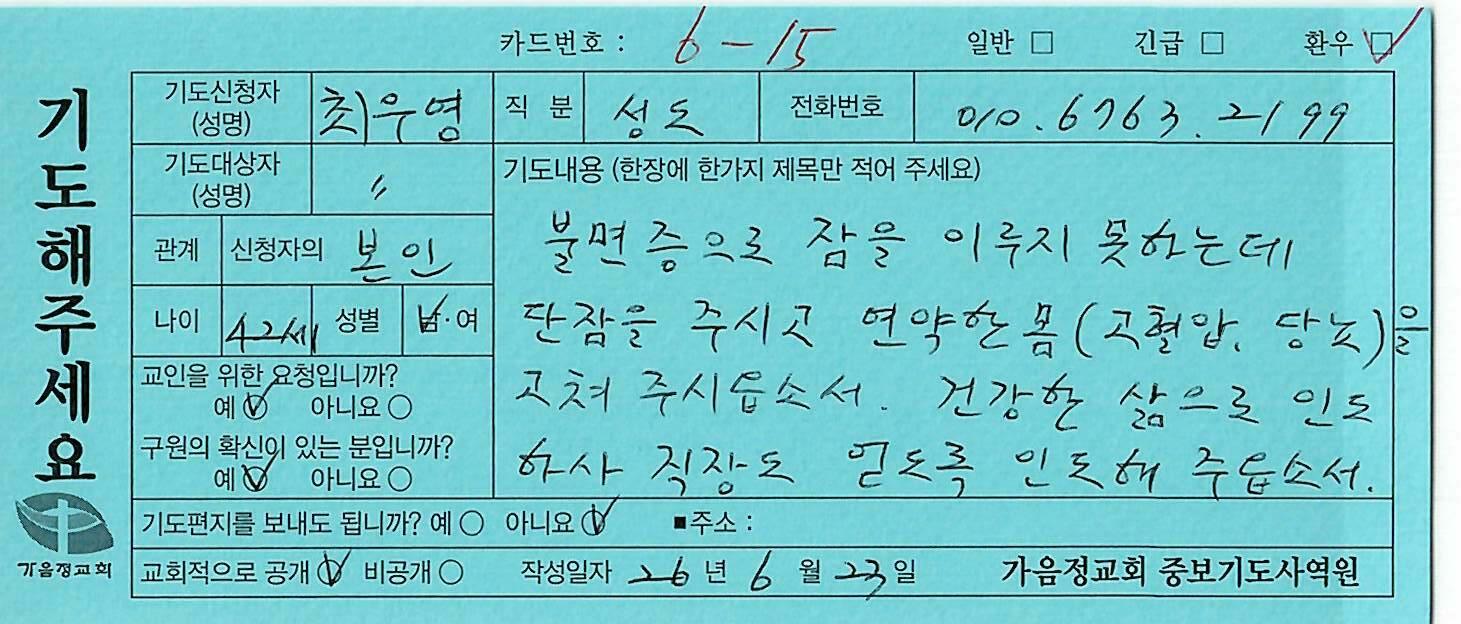 카드번호 : 6-15 일반 □ 긴급 □ 환우 ☑
기도해주세요
기도신청자 (성명) 최우영 직 분 성도 전화번호 010.6763.2199
기도대상자 (성명) 〃
관계 신청자의 본인
나이 42세 성별 남·여
교인을 위한 요청입니까?
예 ☑ 아니요 ○
구원의 확신이 있는 분입니까?
예 ☑ 아니요 ○
기도내용 (한장에 한가지 제목만 적어 주세요)
불면증으로 잠을 이루지 못하는데
단잠을 주시고 연약한 몸(고혈압. 당뇨)을
고쳐 주시옵소서. 건강한 삶으로 인도
하사 직장도 얻도록 인도해 주옵소서.
기도편지를 보내도 됩니까? 예 ○ 아니요 ☑ ■주소 :
교회적으로 공개 ☑ 비공개 ○ 작성일자 26년 6월 23일 가음정교회 중보기도사역원
가음정교회